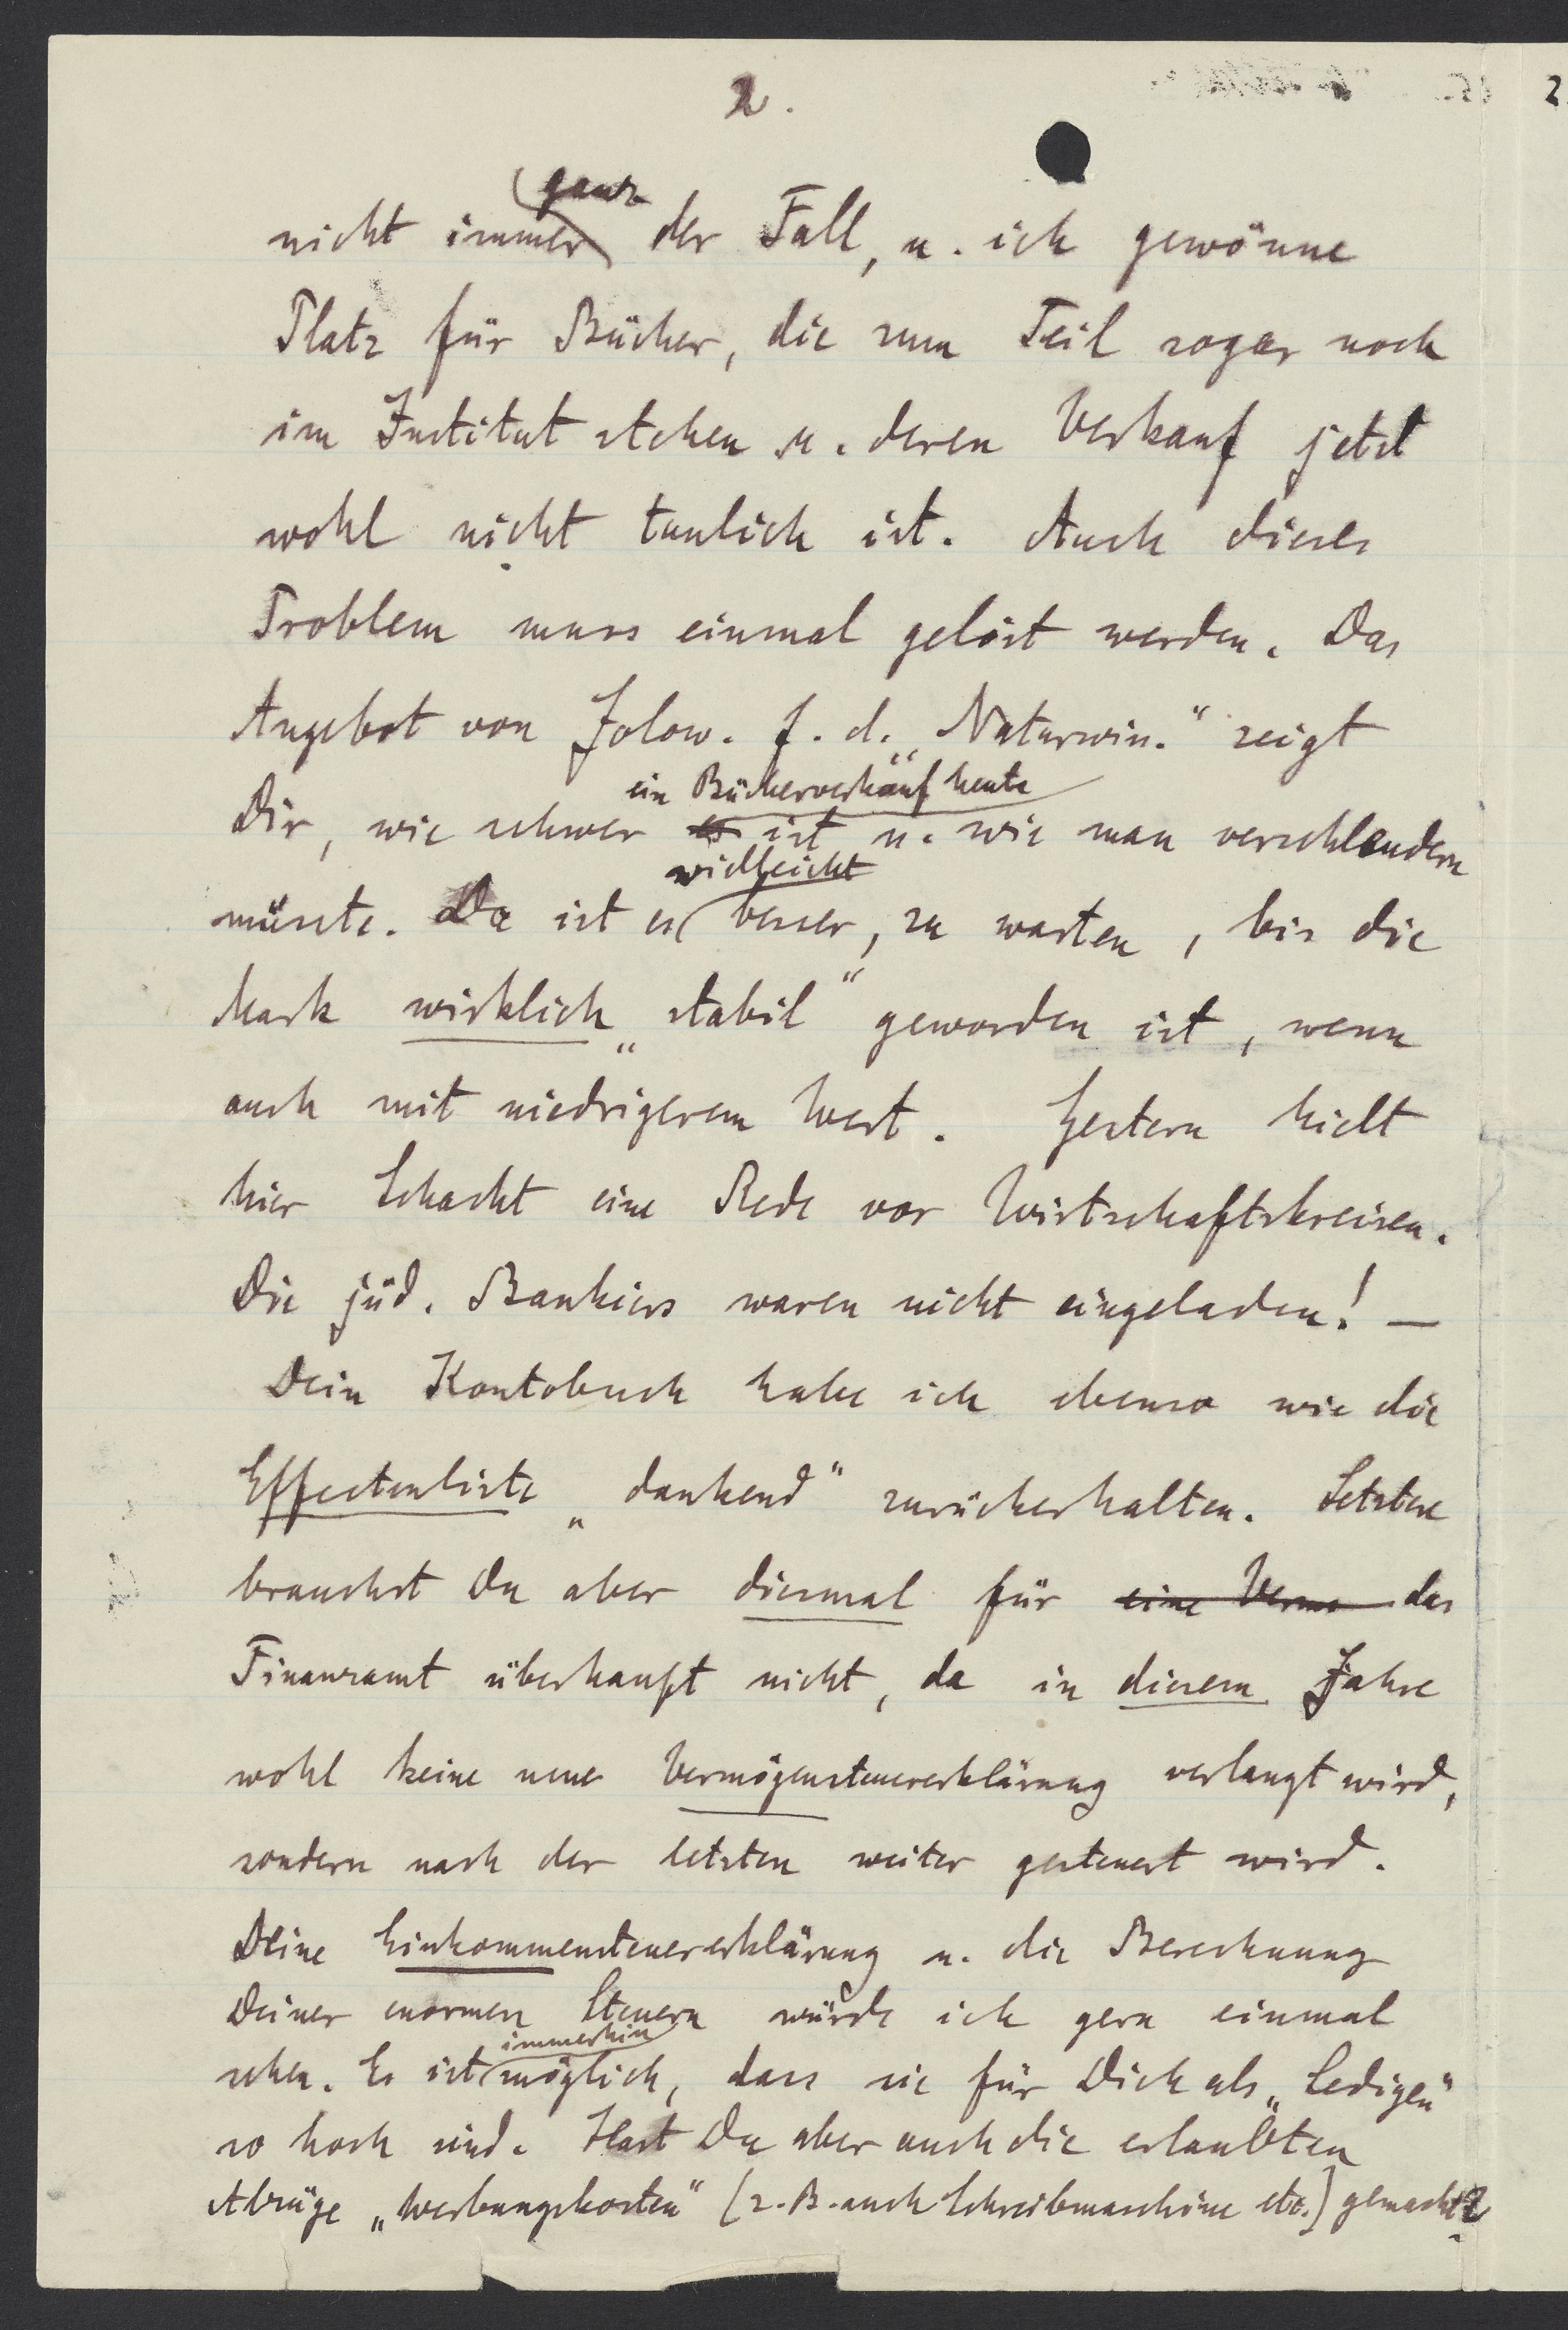 2.
2
ganz
nicht immer der Fall, u. ich gewönne
Platz für Bücher, die zum Teil sogar noch
im Institut stehen u. deren Verkauf jetzt
wohl nicht tunlich ist. Auch dieses
Problem muss einmal gelöst werden. Das
Angebot von Jolow. f. d. „Naturwiss.“ zeigt
ein Bücherverkauf heute
Dir, wie schwer es ist u. wie man verschleudern
vielleicht
müsste. Da ist es besser, zu warten, bis die
Mark wirklich „stabil“ geworden ist, wenn
auch mit niedrigerem Wert. Gestern hielt
hier Schacht eine Rede vor Wirtschaftskreisen.
Die jüd. Bankiers waren nicht eingeladen! —
Dein Kontobuch habe ich ebenso wie die
Effectenliste „dankend“ zurückerhalten. Letztere
brauchst Du aber diesmal für eine Verm das
Finanzamt überhaupt nicht, da in diesem Jahre
wohl keine neue Vermögensteuererklärung verlangt wird,
sondern nach der letzten weiter gesteuert wird.
Deine Einkommensteuererklärung u. die Berechnung
Deiner enormen Steuern würde ich gern einmal
immerhin
sehen. Es ist möglich, dass sie für Dich als „Ledigen“
so hoch sind. Hast Du aber auch die erlaubten
Abzüge „Werbungskosten“ (z. B. auch Schreibmaschine etc.) gemacht?